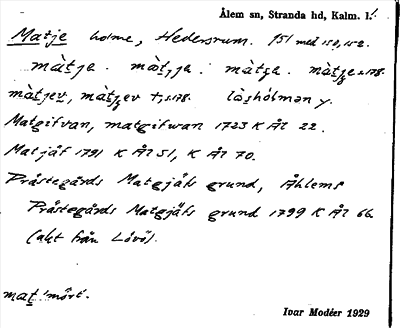 Ålem sn, Stranda hd, Kalm. l.
Matje holme, Hedersrum. f51 med 150, 152.
màt̠ja. màt̠,ja. màt̠ʒa. màt̠ʒe s.178.
Matgifvan, matgifwan 1723 K Ål 22.
Matjäf 1791 K Ål 51, K Ål 70.
Prästegårds Matgjäfs grund, Åhlems
Prästegårds Matgjäfs grund 1799 K Ål 66
(akt från Lövö).
mat̠ 'mört'.
Ivar Modéer 1929